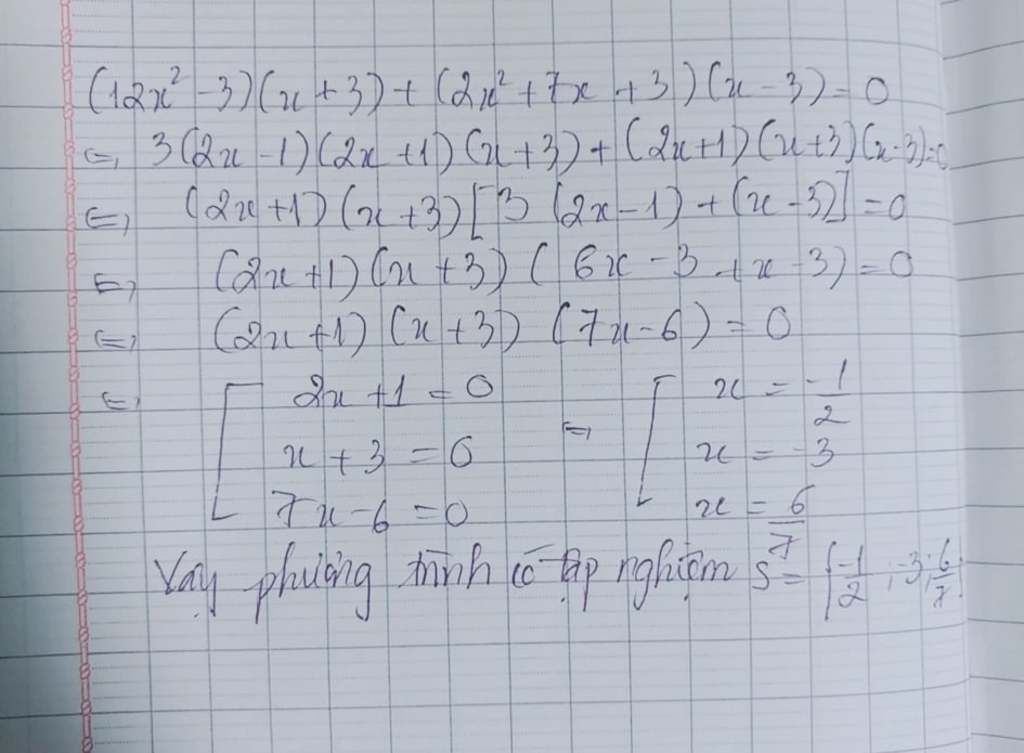 (12x² - 3)(x + 3) + (2x² + 7x + 3)(x - 3) = 0
⇔ 3(2x - 1)(2x + 1)(x + 3) + (2x + 1)(x + 3)(x - 3) = 0
⇔ (2x + 1)(x + 3)[3(2x - 1) + (x - 3)] = 0
⇔ (2x + 1)(x + 3)(6x - 3 + x - 3) = 0
⇔ (2x + 1)(x + 3)(7x - 6) = 0
⇔ [ 2x + 1 = 0 ⇔ [ x = -1/2
x + 3 = 0 x = -3
7x - 6 = 0 x = 6/7
Vậy phương trình có tập nghiệm S = {-1/2 ; -3 ; 6/7}